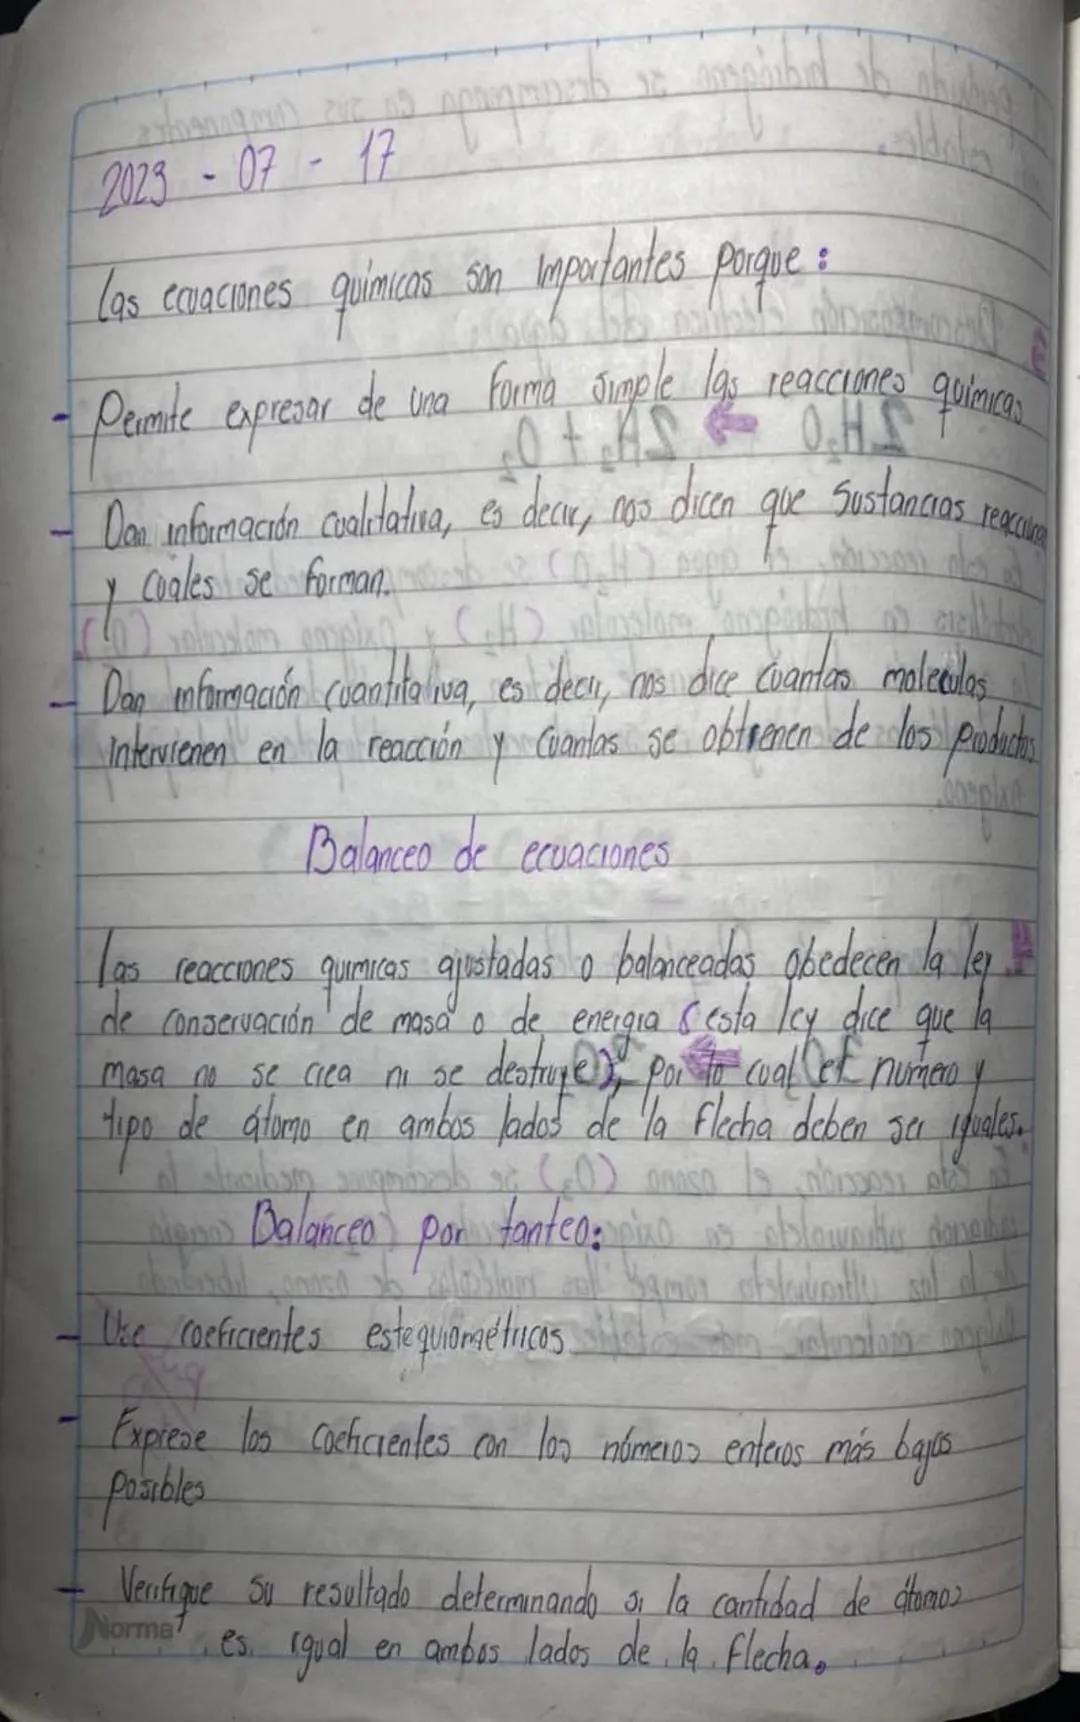 2023 - 07 - 17
las ecuaciones químicas son importantes porque:
- Permite expresar de una forma simple las reacciones químicas
- Dan información cualitativa, es decir, nos dicen que sustancias reaccionan
y cuales se forman.
- Dan información cuantitativa, es decir, nos dice cuantas moleculas
intervienen en la reacción y cuantas se obtienen de los productos
Balanceo de ecuaciones
las reacciones quimicas ajustadas o balanceadas obedecen la ley
de conservación de masa o de energia (esta ley dice que la
masa no se crea ni se destruye), por lo cual el numero y
tipo de átomo en ambos lados de la flecha deben ser iguales.
Balanceo por tanteo:
- Use coeficientes estequiométricos
- Exprese los coeficientes con los números enteros más bajos
posibles
- Verifique su resultado determinando si la cantidad de átomos
Norma
es igual en ambos lados de la flecha.